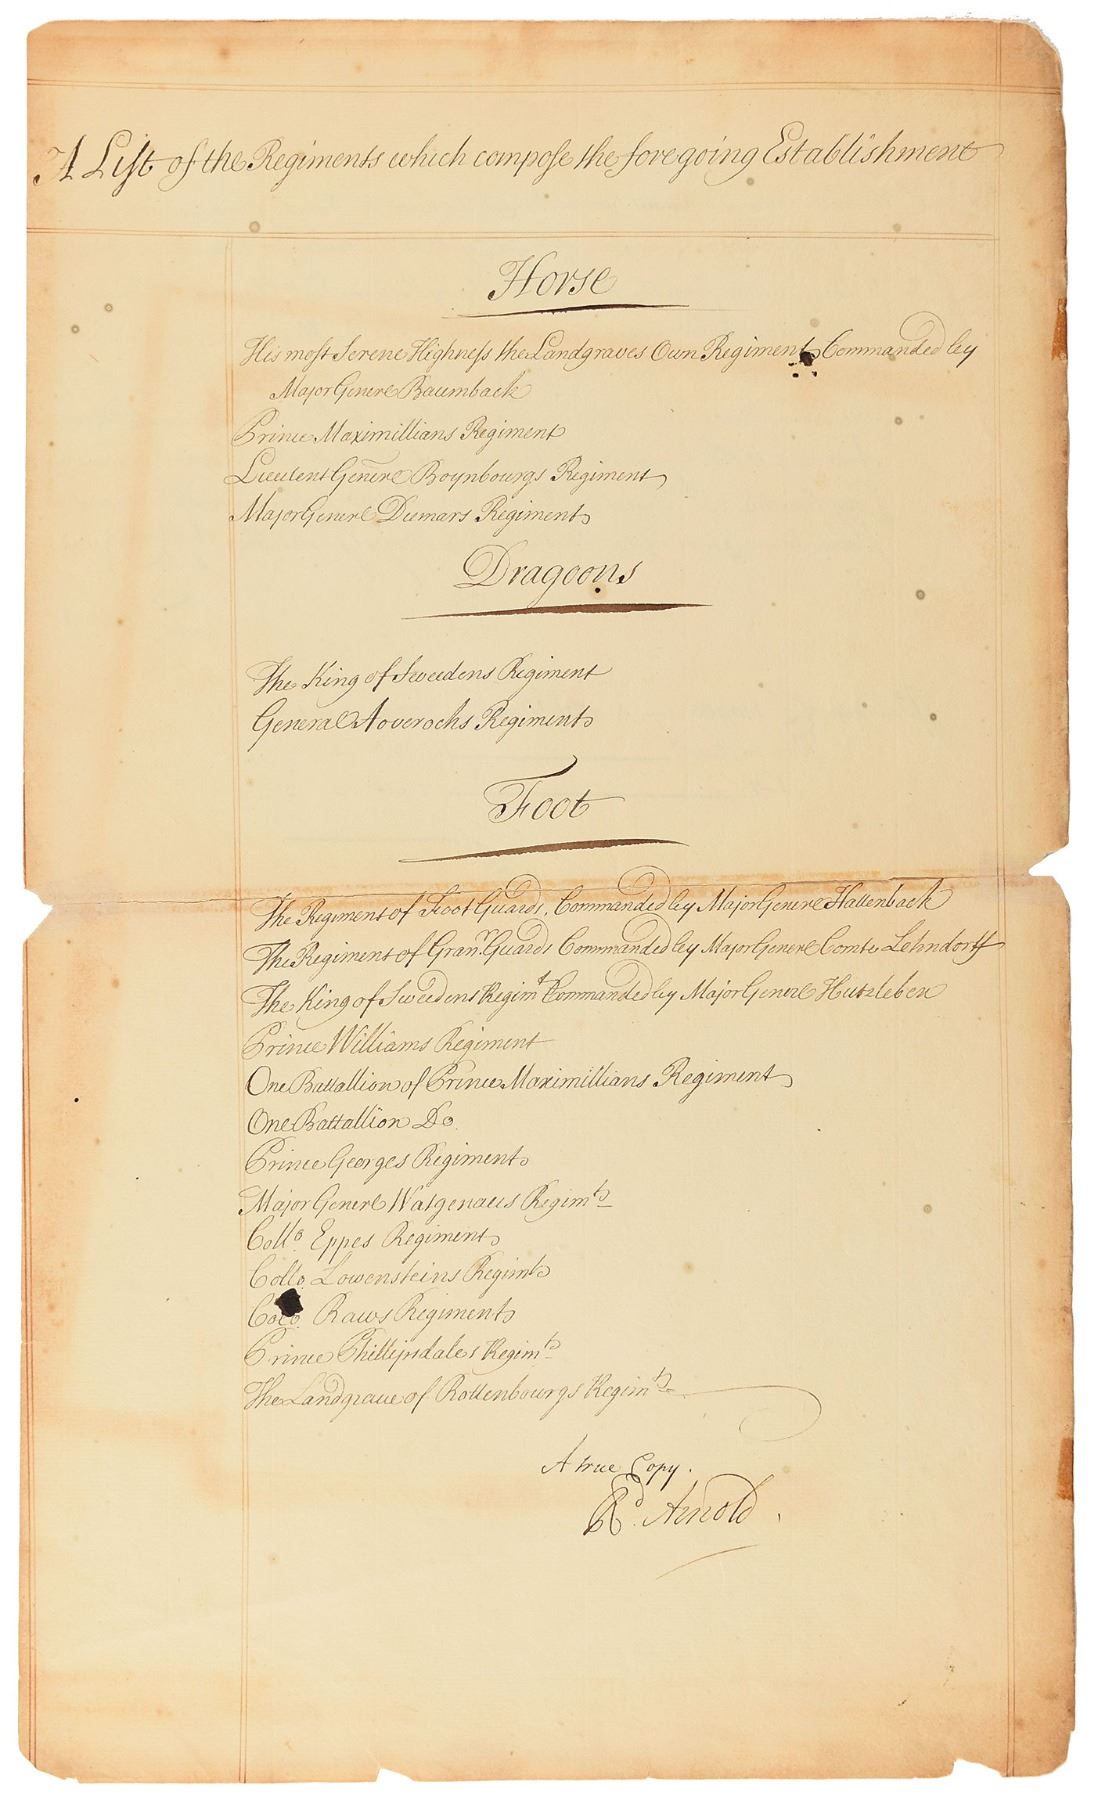 A List of the Regiments which compose the foregoing Establishment
Horse
His most Serene Highness the Landgraves Own Regiment Commanded by
Major Generl Baumback
Prince Maximillians Regiment
Lieutent Generl Boynbourgs Regiment
Major Generl Diemars Regiment
Dragoons
The King of Sweedens Regiment
General Aoverochs Regiment
Foot
The Regiment of Foot Guards, Commanded by Major Generl Hattenback
The Regiment of Gran.rs Guards Commanded by Major Generl Comte Lehndorff
The King of Sweedens Regimt Commanded by Major Generl Hutzleben
Prince Williams Regiment
One Battallion of Prince Maximillians Regiment
One Battallion Do.
Prince Georges Regiment
Major Generl Watgenaus Regimt
Collo Eppes Regiment
Collo. Lowensteins Regimt
Collo. Raws Regiment
Prince Phillipsdales Regimt
The Landgrave of Rottenbourgs Regimt
A true Copy.
Rd. Arnold.